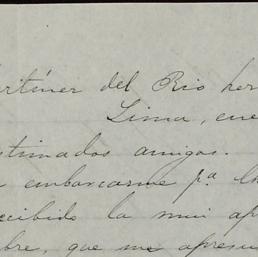 artínez del Rio her
Lima, ene
stimados amigos.
embarcarme pª
ecibido la mui ap
bre, que me apresu